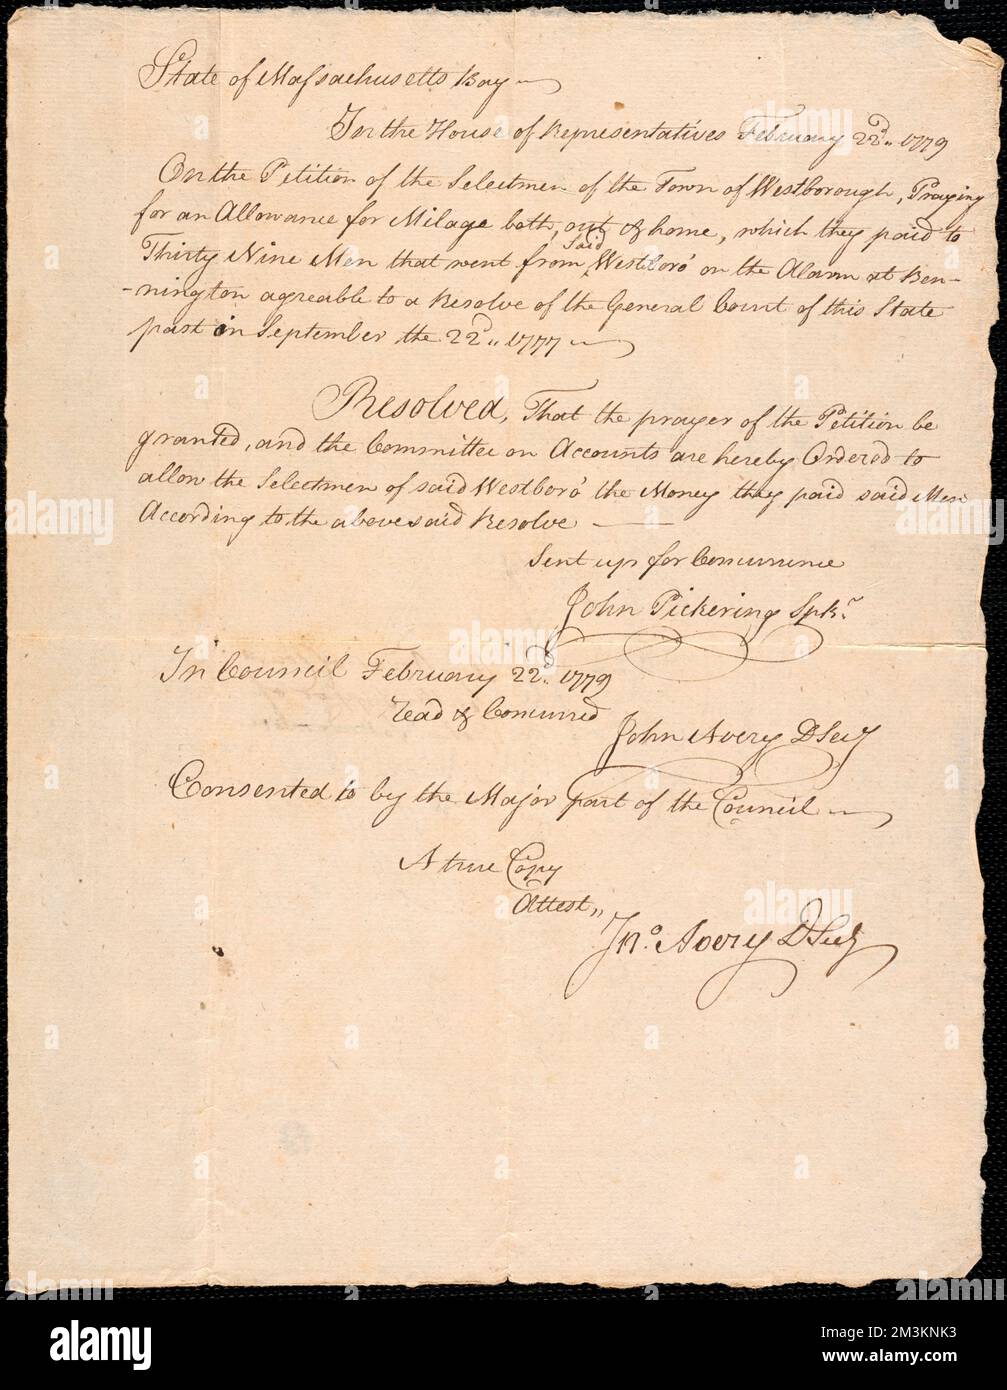 State of Massachusetts Bay
In the House of Representatives February 22d. 1779
On the Petition of the Selectmen of the Town of Westborough, Praying
for an Allowance for Milage both, out & home, which they paid to
Thirty Nine Men that went from Said Westboro' on the Alarm at Ben-
-nington agreable to a Resolve of the General Court of this State
past in September the 22d. 1777
Resolved, That the prayer of the Petition be
granted, and the Committee on Accounts are hereby Ordered to
allow the Selectmen of said Westboro' the Money they paid said Men
According to the abovesaid Resolve
Sent up for Concurrence
John Pickering Spkr.
In Council February 22d. 1779
read & Concurred
John Avery D Secy
Consented to by the Major part of the Council
A true Copy
Attest,,
Jno. Avery D Secy
alamy
Image ID: 2M3KNK3
www.alamy.com